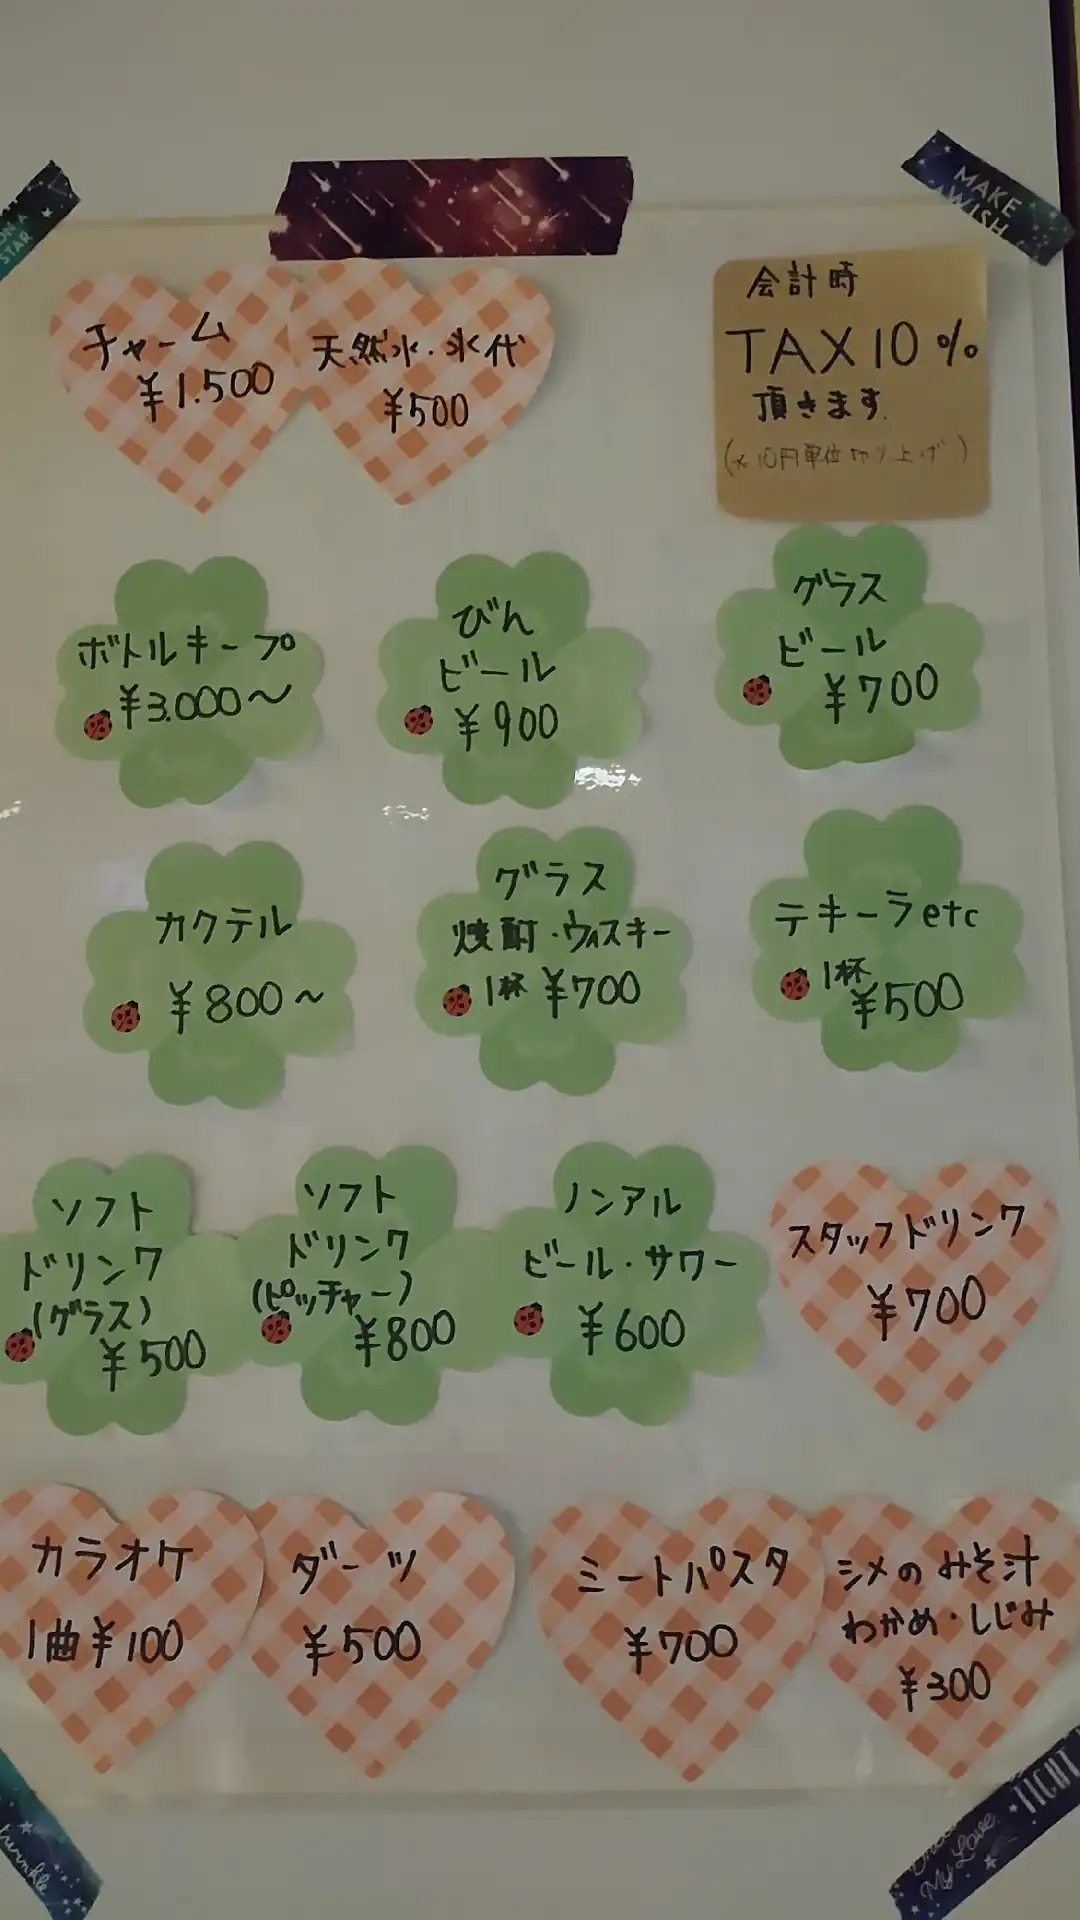 ON A
STAR
MAKE
A WISH
チャーム
¥1.500
天然水・氷代
¥500
会計時
TAX10%
頂きます.
(※10円単位切り上げ)
ボトルキープ
¥3.000〜
びん
ビール
¥900
グラス
ビール
¥700
カクテル
¥800〜
グラス
焼酎・ウィスキー
1杯 ¥700
テキーラetc
1杯
¥500
ソフト
ドリンク
(グラス)
¥500
ソフト
ドリンク
(ピッチャー)
¥800
ノンアル
ビール・サワー
¥600
スタッフドリンク
¥700
カラオケ
1曲¥100
ダーツ
¥500
ミートパスタ
¥700
シメのみそ汁
わかめ・しじみ
¥300
twinkle
My Love